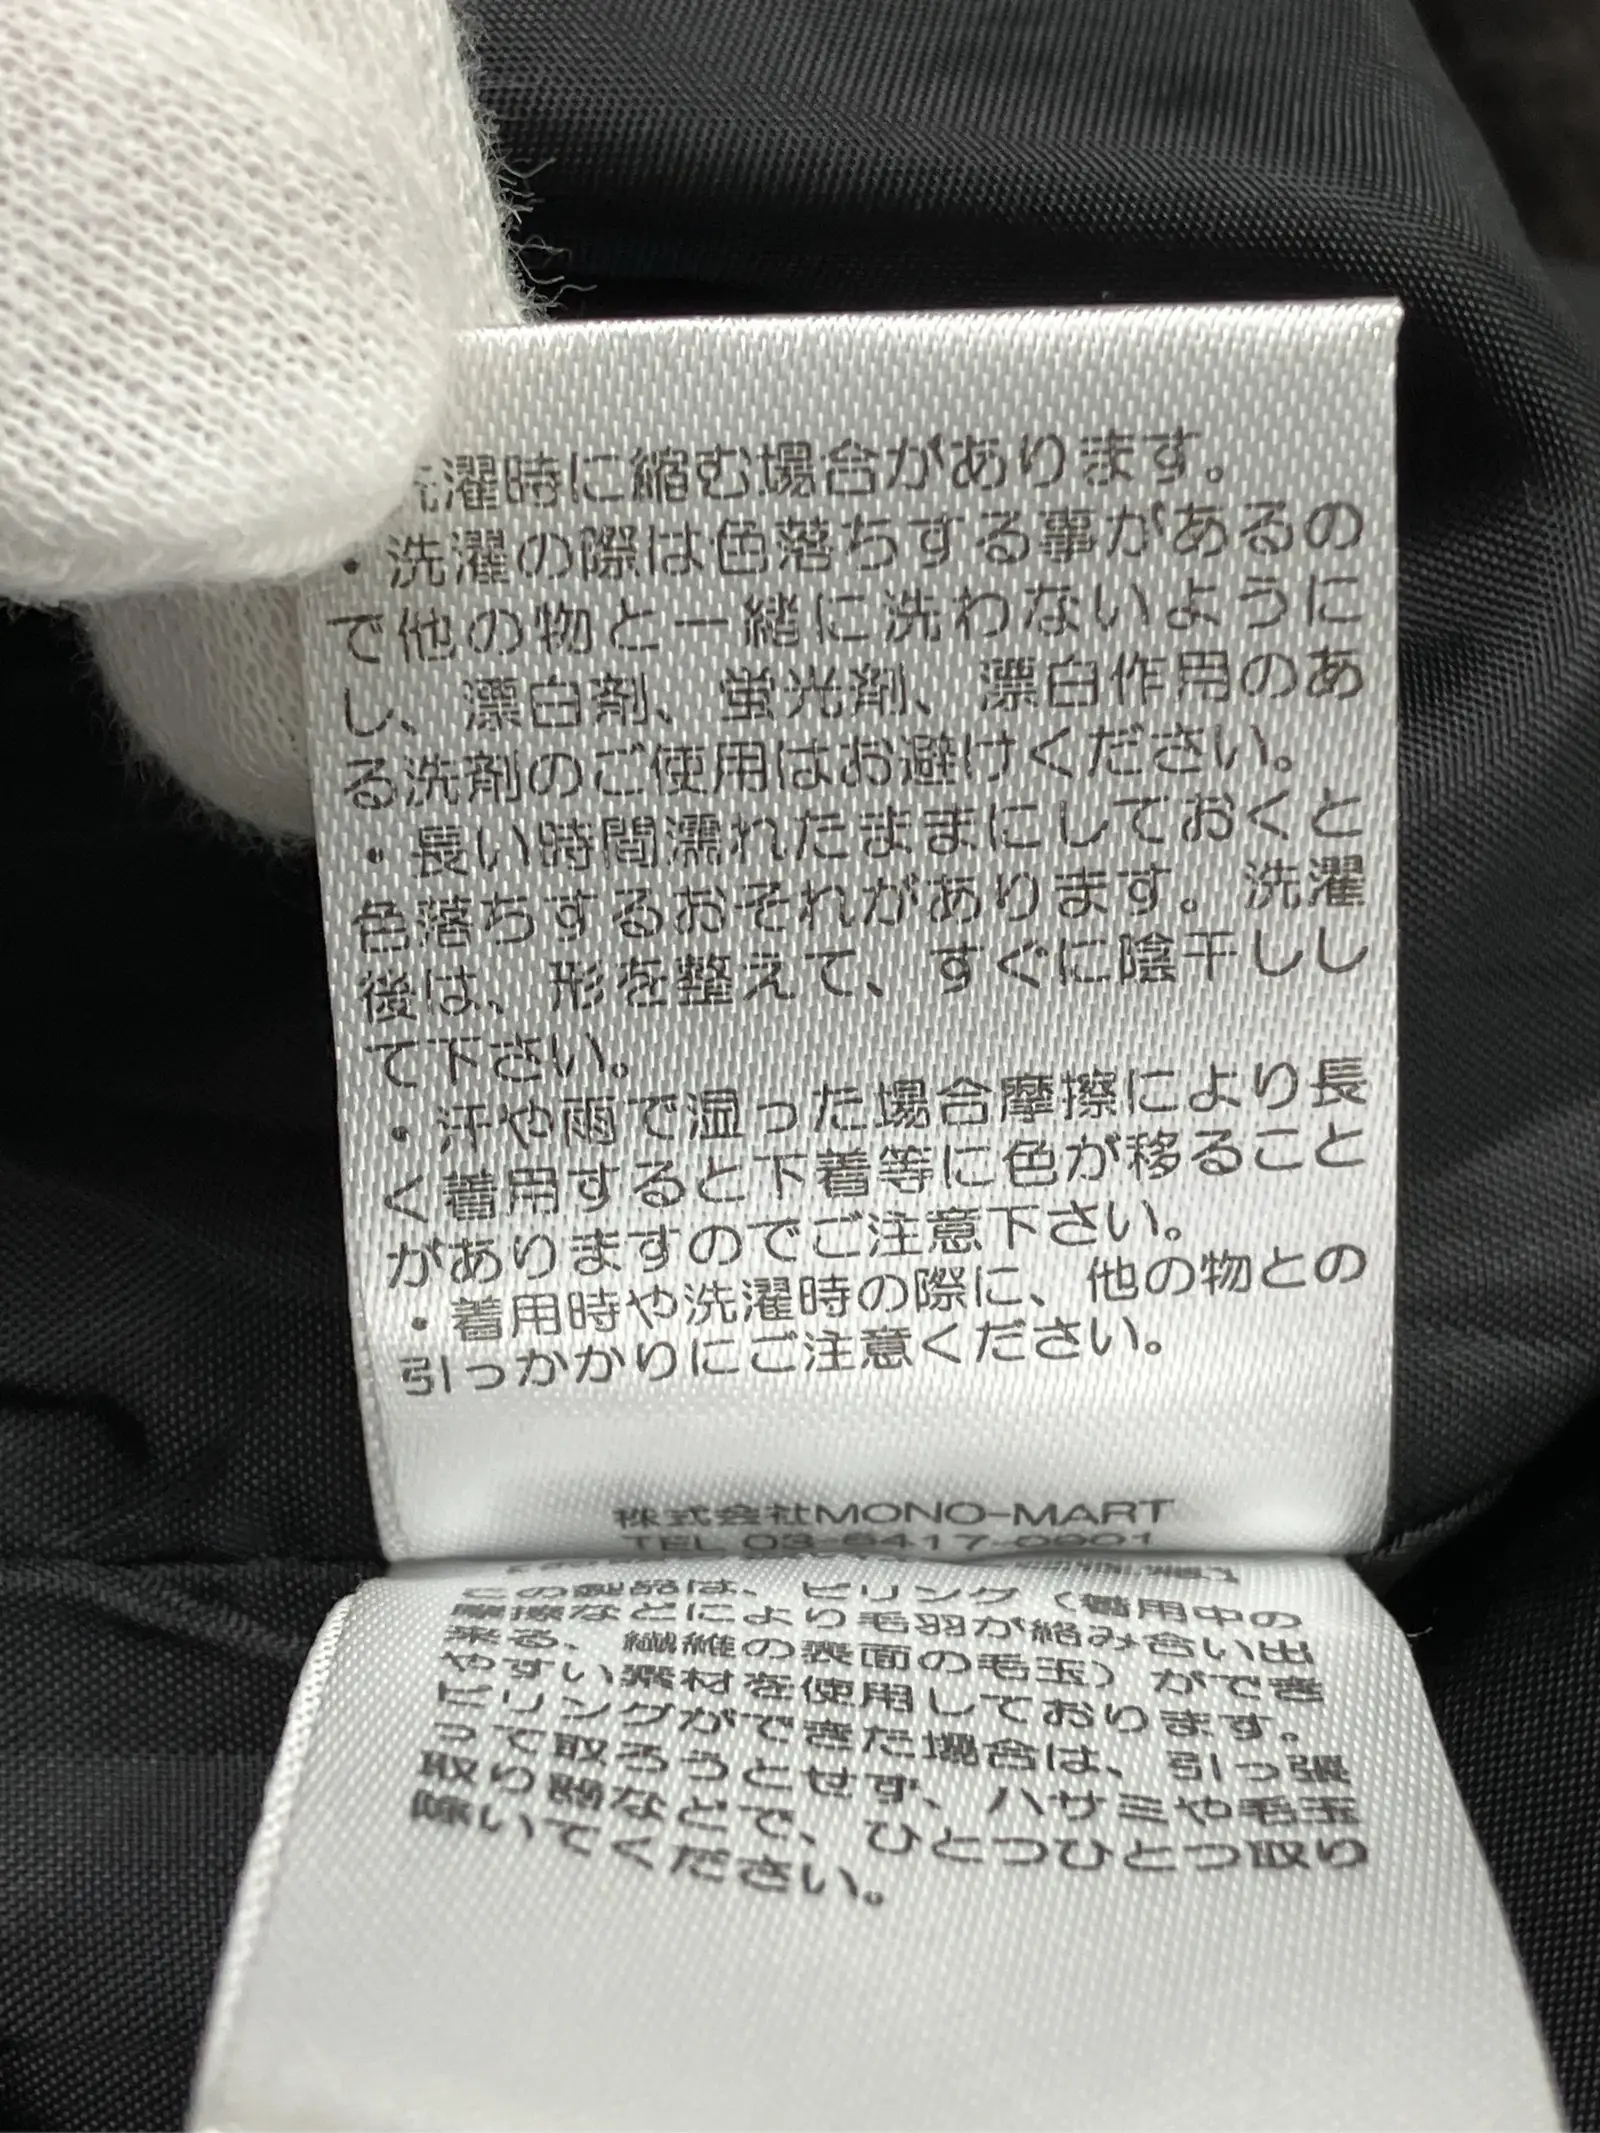 洗濯時に縮む場合があります。
・洗濯の際は色落ちする事があるの
で他の物と一緒に洗わないように
し、漂白剤、蛍光剤、漂白作用のあ
る洗剤のご使用はお避けください。
・長い時間濡れたままにしておくと
色落ちするおそれがあります。洗濯
後は、形を整えて、すぐに陰干しし
て下さい。
・汗や雨で湿った場合摩擦により長
く着用すると下着等に色が移ること
がありますのでご注意下さい。
・着用時や洗濯時の際に、他の物との
引っかかりにご注意ください。
株式会社MONO-MART
TEL 03-6417-0901
この製品は、ピリング（着用中の
摩擦などにより毛羽が絡み合い出
来る、繊維の表面の毛玉）ができ
やすい素材を使用しております。
ピリングができた場合は、引っ張
って取ろうとせず、ハサミや毛玉
取り器などで、ひとつひとつ取り
除いてください。